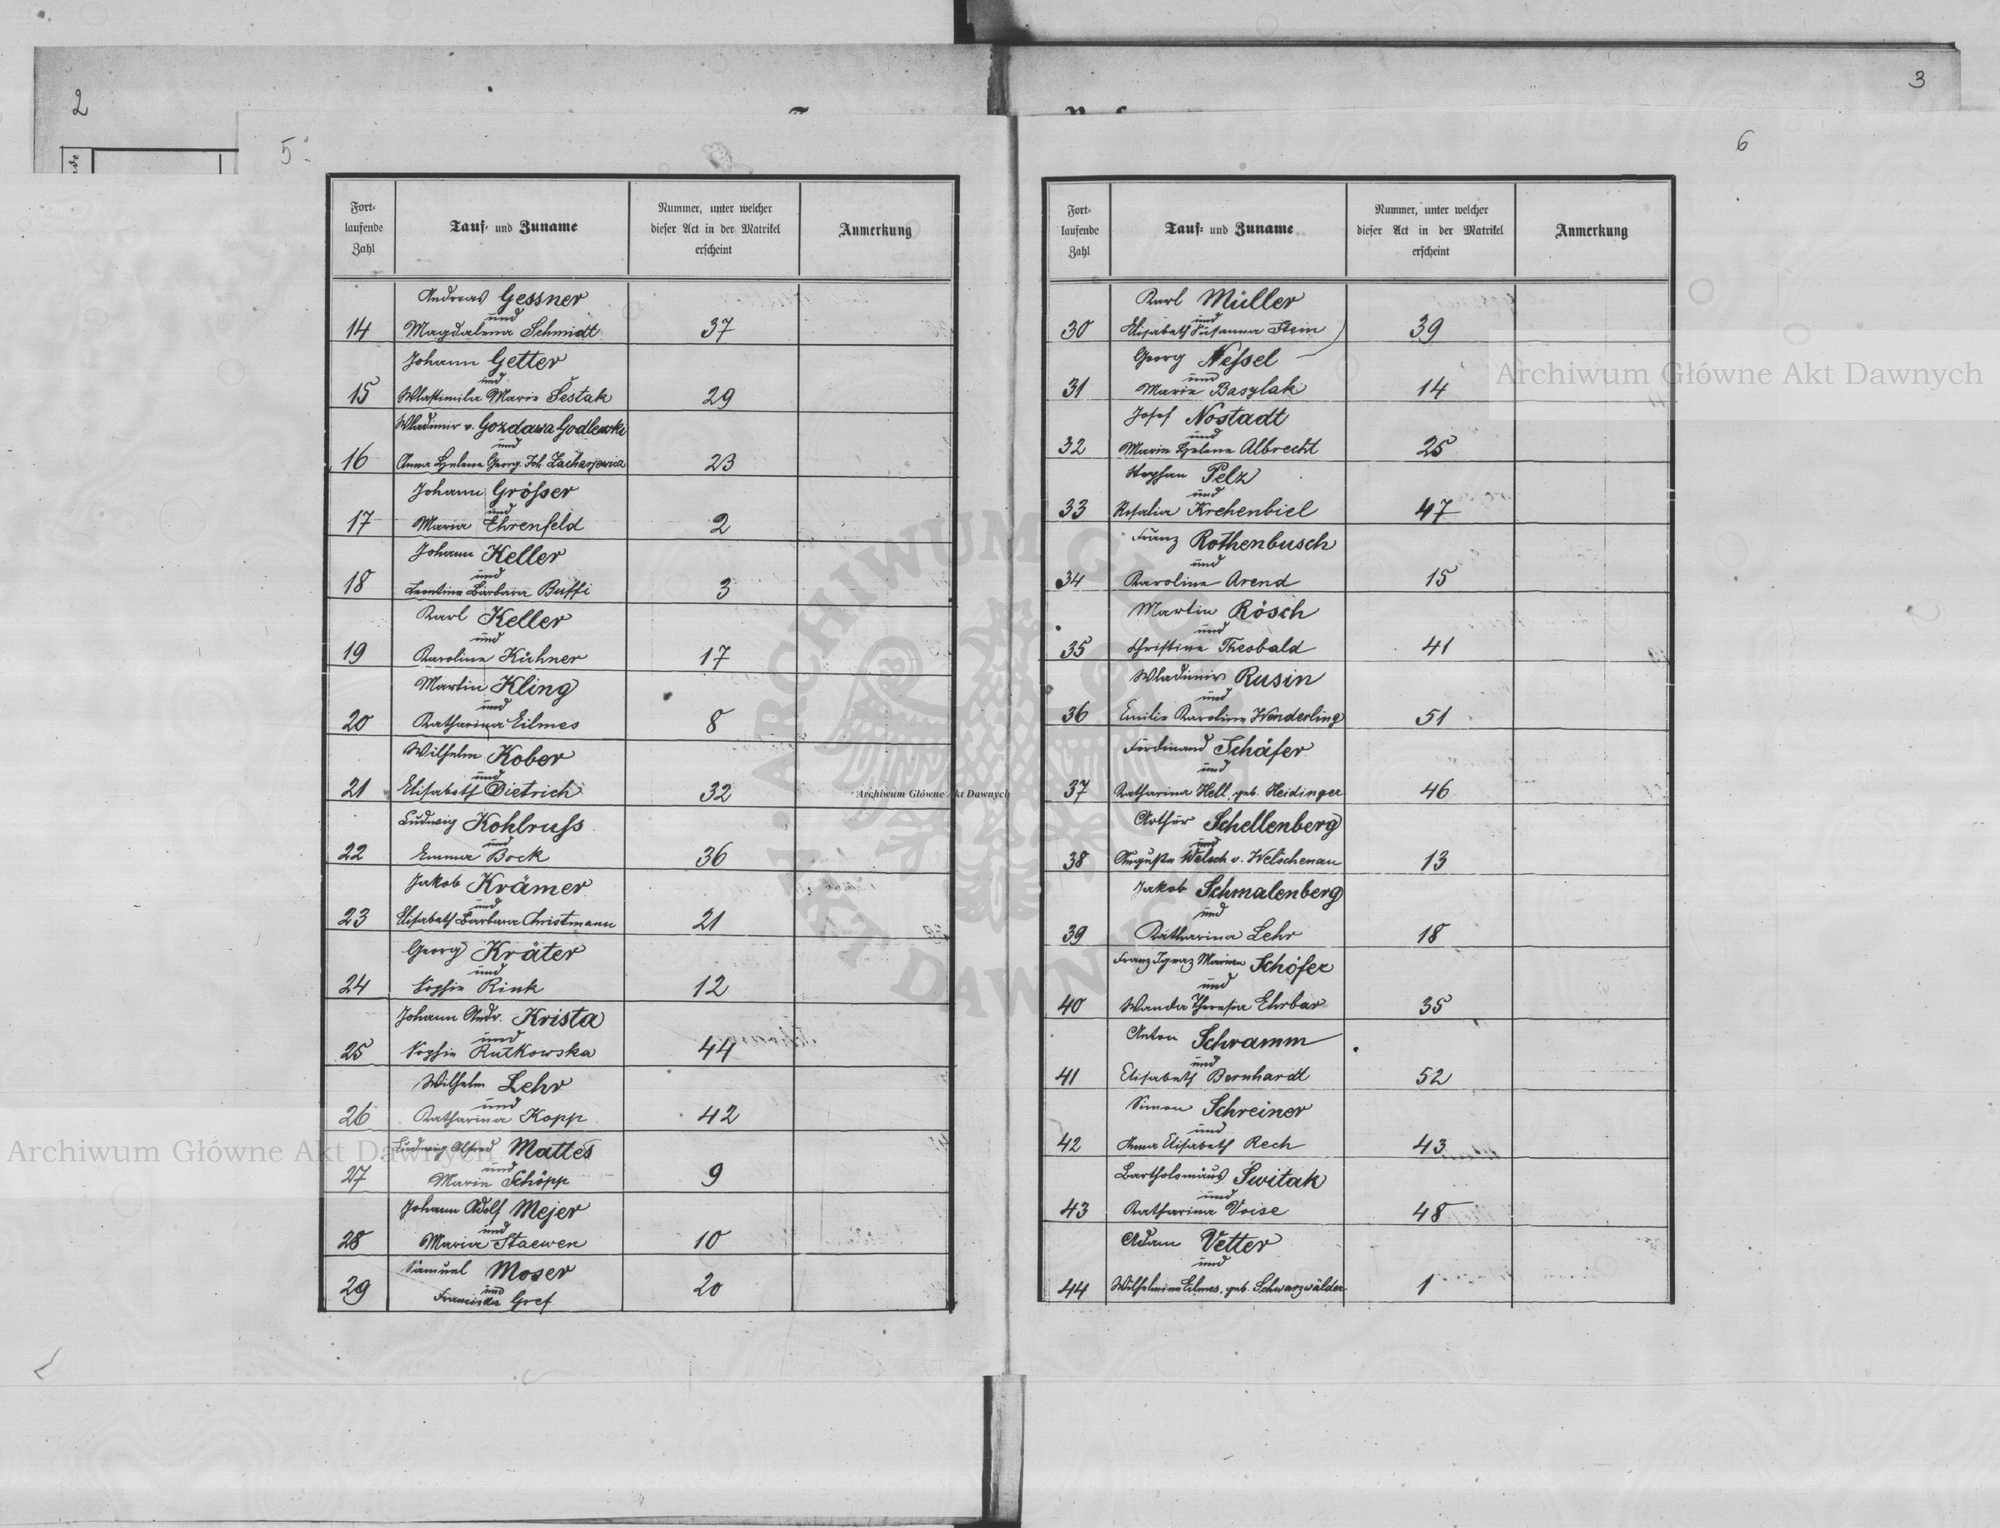 2
3
5
6
Fort-
laufende
Zahl
Tauf- und Zuname
Nummer, unter welcher
dieser Act in der Matrikel
erscheint
Anmerkung
Andreas Gessner
und
14 Magdalena Schmidt 37
Johann Getter
und
15 Wlastimila Marie Šestak 29
Wladimir v. Gozdawa Godlewski
und
16 Anna Helene Georg. Joh. Zacharjewicz 23
Johann Grösser
und
17 Maria Ehrenfeld 2
Johann Keller
und
18 Leontine Barbara Buffi 3
Karl Keller
und
19 Karoline Kühner 17
Martin Kling
und
20 Katharina Eilmes 8
Wilhelm Kober
und
21 Elisabeth Dietrich 32
Ludwig Kohlruss
und
22 Emma Bock 36
Jakob Krämer
und
23 Elisabeth Barbara Christmann 21
Georg Kräter
und
24 Sophie Rink 12
Johann Andr. Krista
und
25 Sophie Rutkowska 44
Wilhelm Lehr
und
26 Katharina Kopp 42
Ludwig Alfred Mattes
und
27 Marie Schöpp 9
Johann Adolf Mejer
und
28 Maria Staewen 10
Samuel Moser
und
29 Franciska Gref 20
Fort-
laufende
Zahl
Tauf- und Zuname
Nummer, unter welcher
dieser Act in der Matrikel
erscheint
Anmerkung
Karl Müller
und
30 Elisabeth Susanna Stein 39
Georg Nessel
und
31 Marie Baszlak 14
Josef Nostadt
und
32 Marie Helene Albrecht 25
Stephan Pelz
und
33 Rosalia Krehenbiel 47
Franz Rothenbusch
und
34 Karoline Arend 15
Martin Rösch
und
35 Christine Theobald 41
Wladimir Rusin
und
36 Emilie Karoline Wenderling 51
Ferdinand Schäfer
und
37 Katharina Hell, geb. Heidinger 46
Arthur Schellenberg
und
38 Auguste Welsch v. Welschenau 13
Jakob Schmalenberg
und
39 Katharina Lehr 18
Franz Ignaz Marian Schöfer
und
40 Wanda Theresia Ehrbar 35
Anton Schramm
und
41 Elisabeth Bernhardt 52
Simon Schreiner
und
42 Anna Elisabeth Rech 43
Bartholomäus Świtak
und
43 Katharina Voise 48
Adam Vetter
und
44 Wilhelmine Eilmes, geb. Schwarzwälder 1
Archiwum Główne Akt Dawnych
Archiwum Główne Akt Dawnych
Archiwum Główne Akt Dawnych